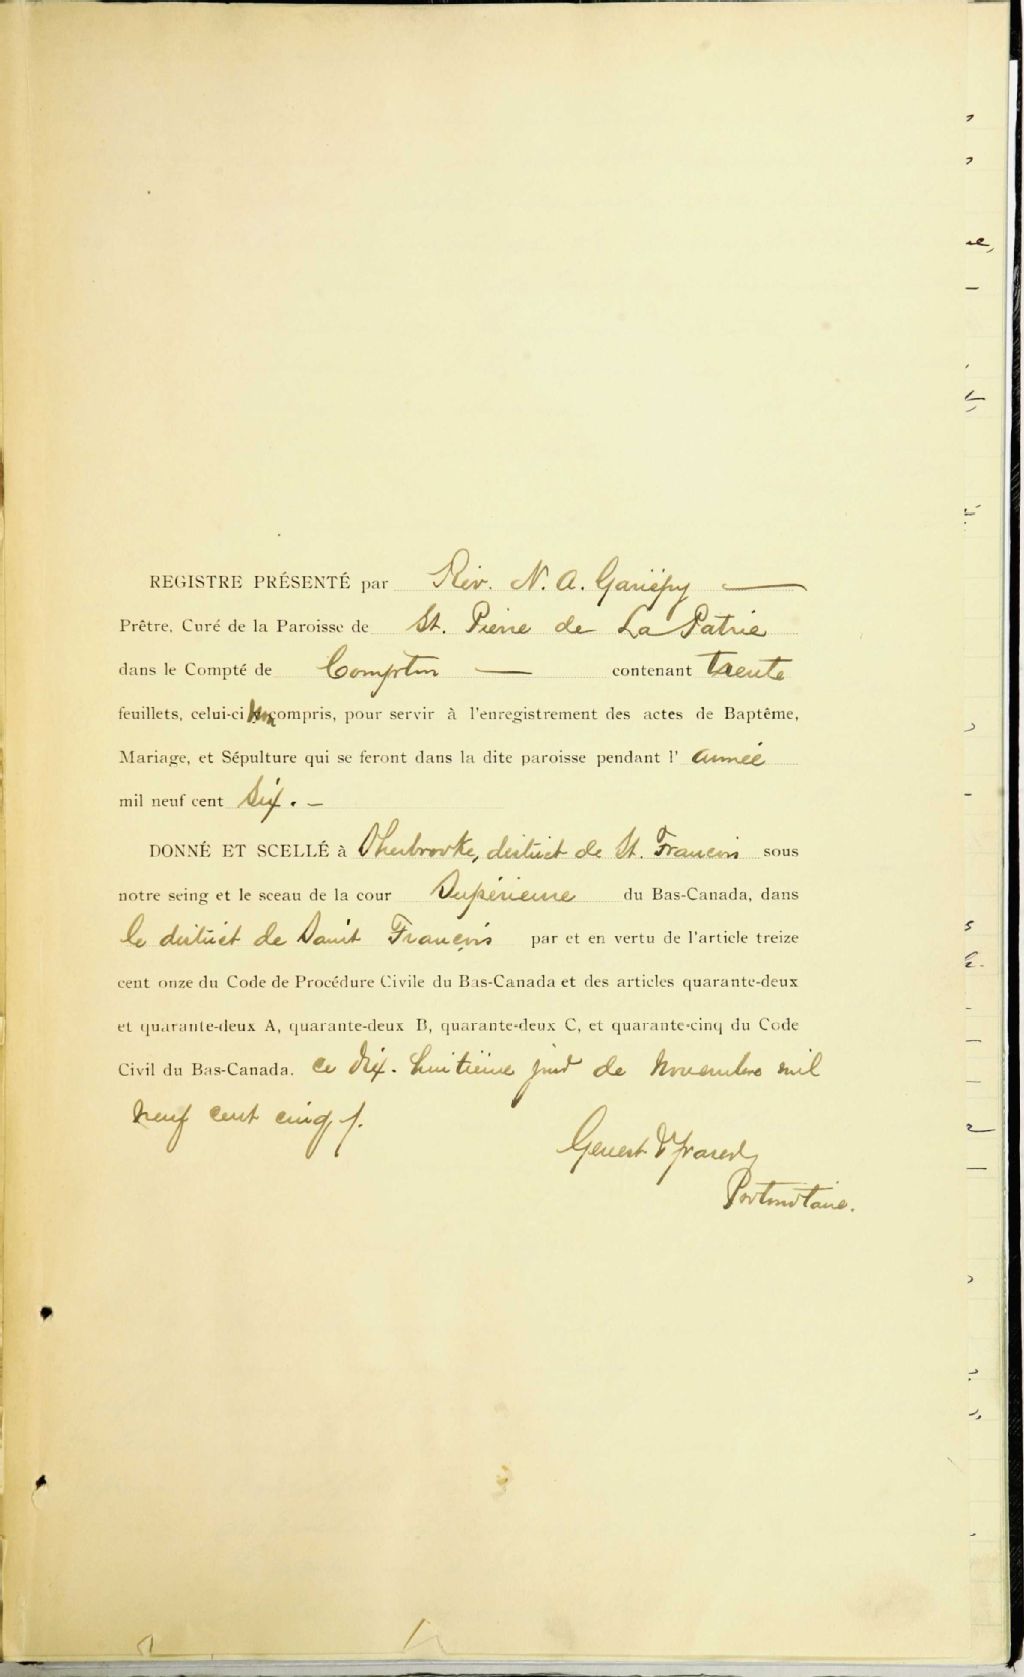 REGISTRE PRÉSENTÉ par Rév. N. A. Gariépy —
Prêtre, Curé de la Paroisse de St. Pierre de La Patrie
dans le Compté de Compton — contenant trente
feuillets, celui-ci non compris, pour servir à l'enregistrement des actes de Baptême,
Mariage, et Sépulture qui se feront dans la dite paroisse pendant l' année
mil neuf cent Six. –
DONNÉ ET SCELLÉ à Sherbrooke, district de St. François sous
notre seing et le sceau de la cour Supérieure du Bas-Canada, dans
le district de Saint François par et en vertu de l'article treize
cent onze du Code de Procédure Civile du Bas-Canada et des articles quarante-deux
et quarante-deux A, quarante-deux B, quarante-deux C, et quarante-cinq du Code
Civil du Bas-Canada. ce dix-huitième jour de Novembre mil
neuf cent cinq
Genest &
Protonotaire.